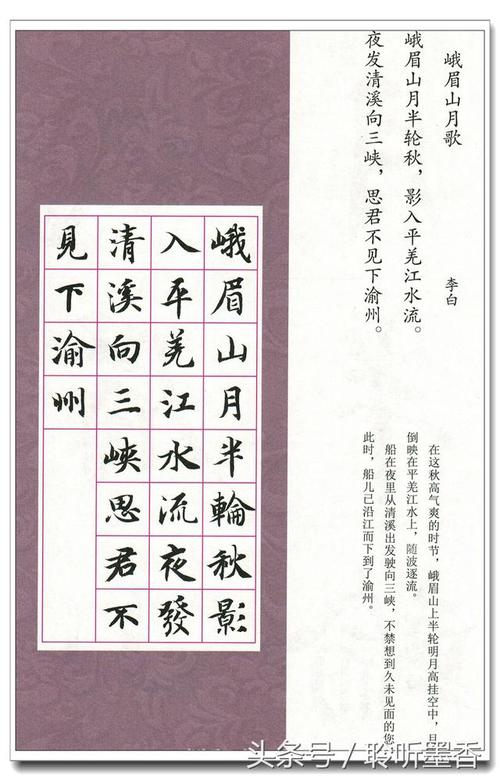 峨眉山月歌
李白
峨眉山月半轮秋，影入平羌江水流。
夜发清溪向三峡，思君不见下渝州。
在这秋高气爽的时节，峨眉山上半轮明月高挂空中，且
倒映在平羌江水上，随波逐流。
船在夜里从清溪出发驶向三峡，不禁想到久未见面的您，
此时，船儿已沿江而下到了渝州。
峨眉山月半輪秋影
入平羌江水流夜發
清溪向三峽思君不
見下渝州
头条号／聆听墨香